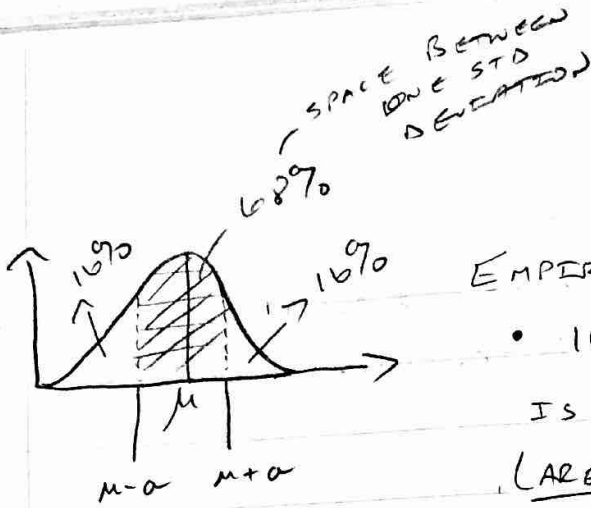 SPACE BETWEEN
ONE STD
DEVIATION
68%
16%
16%
EMPIR
•
IS
(ARE
μ
μ-σ μ+σ